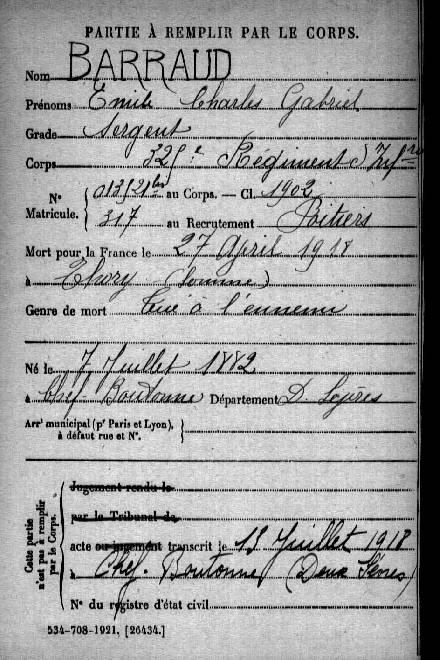 PARTIE À REMPLIR PAR LE CORPS.
Nom BARRAUD
Prénoms Emile Charles Gabriel
Grade Sergent
Corps 325e Régiment d'Infrie
N° Matricule. 013521bis au Corps. — Cl. 1902
317 au Recrutement Poitiers
Mort pour la France le 27 April 1918
à Thory (Somme)
Genre de mort Tué à l'ennemi
Né le 7 Juillet 1882
à Chef-Boutonne Département D. Sèvres
Arrt municipal (pr Paris et Lyon),
à défaut rue et N°.
Cette partie
n'est pas à remplir
par le Corps.
Jugement rendu le
par le Tribunal de
acte ou jugement transcrit le 13 Juillet 1918
à Chef-Boutonne (Deux Sèvres)
N° du registre d'état civil
534-708-1921. [26434.]